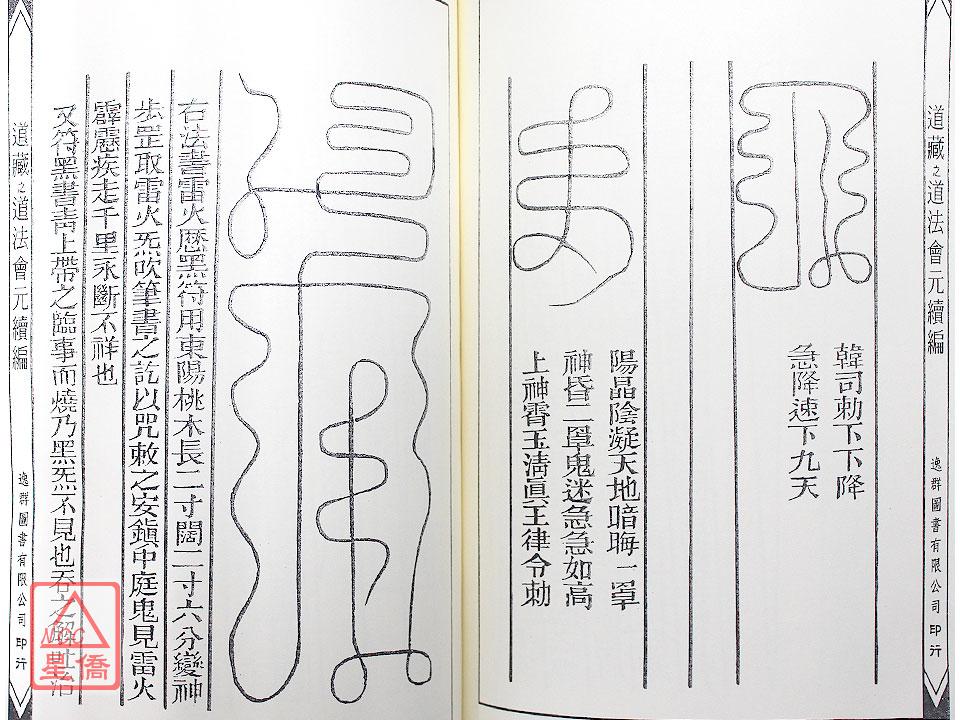 道藏之道法會元續編
逸群圖書有限公司 印行
韓司勅下下降
急降速下九天
陽晶陰凝天地暗晦一罩
神昏二罩鬼迷急急如高
上神霄玉淸眞王律令勅
右法書雷火厯黑符用東陽桃木長二寸闊二寸六分變神
步罡取雷火炁吹筆書之訖以咒敕之安鎭中庭鬼見雷火
霹靂疾走千里永斷不祥也
又符黑書青上帶之臨事而燒乃黑炁不見也吞之解
治
道藏之道法會元續編
逸群圖書有限公司 印行
NCC
星僑